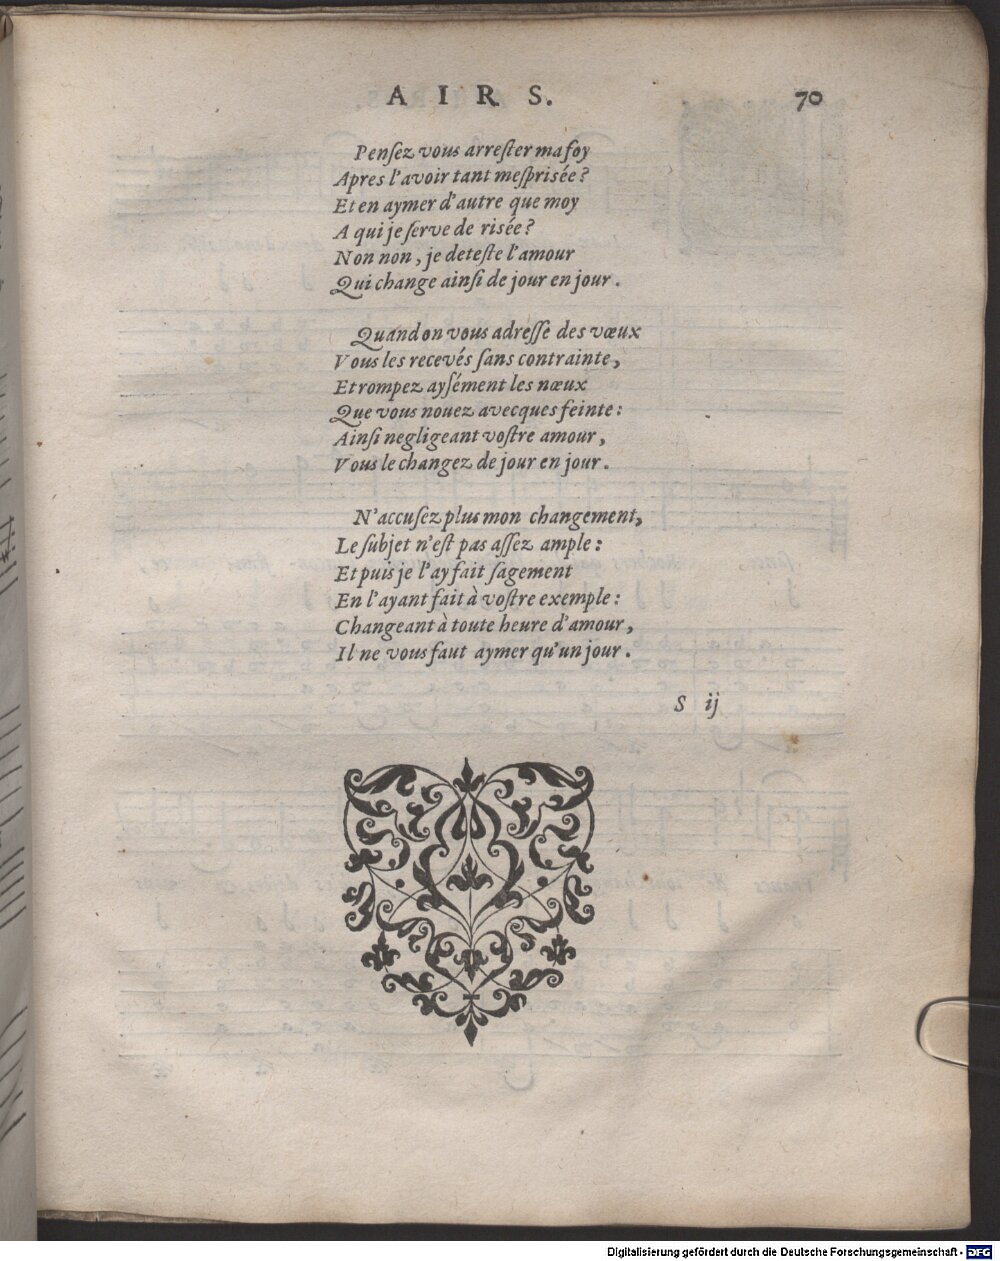 AIRS. 70
Penſez vous arreſter ma foy
Apres l'avoir tant meſpriſée?
Et en aymer d'autre que moy
A qui je ſerve de riſée?
Non non, je deteſte l'amour
Qui change ainſi de jour en jour.
Quand on vous adreſſe des vœux
Vous les recevés ſans contrainte,
Et rompez ayſément les nœux
Que vous nouez avecques feinte:
Ainſi negligeant voſtre amour,
Vous le changez de jour en jour.
N'accuſez plus mon changement,
Le ſubjet n'eſt pas aſſez ample:
Et puis je l'ay fait ſagement
En l'ayant fait à voſtre exemple:
Changeant à toute heure d'amour,
Il ne vous faut aymer qu'un jour.
S ij
Digitalisierung gefördert durch die Deutsche Forschungsgemeinschaft - DFG